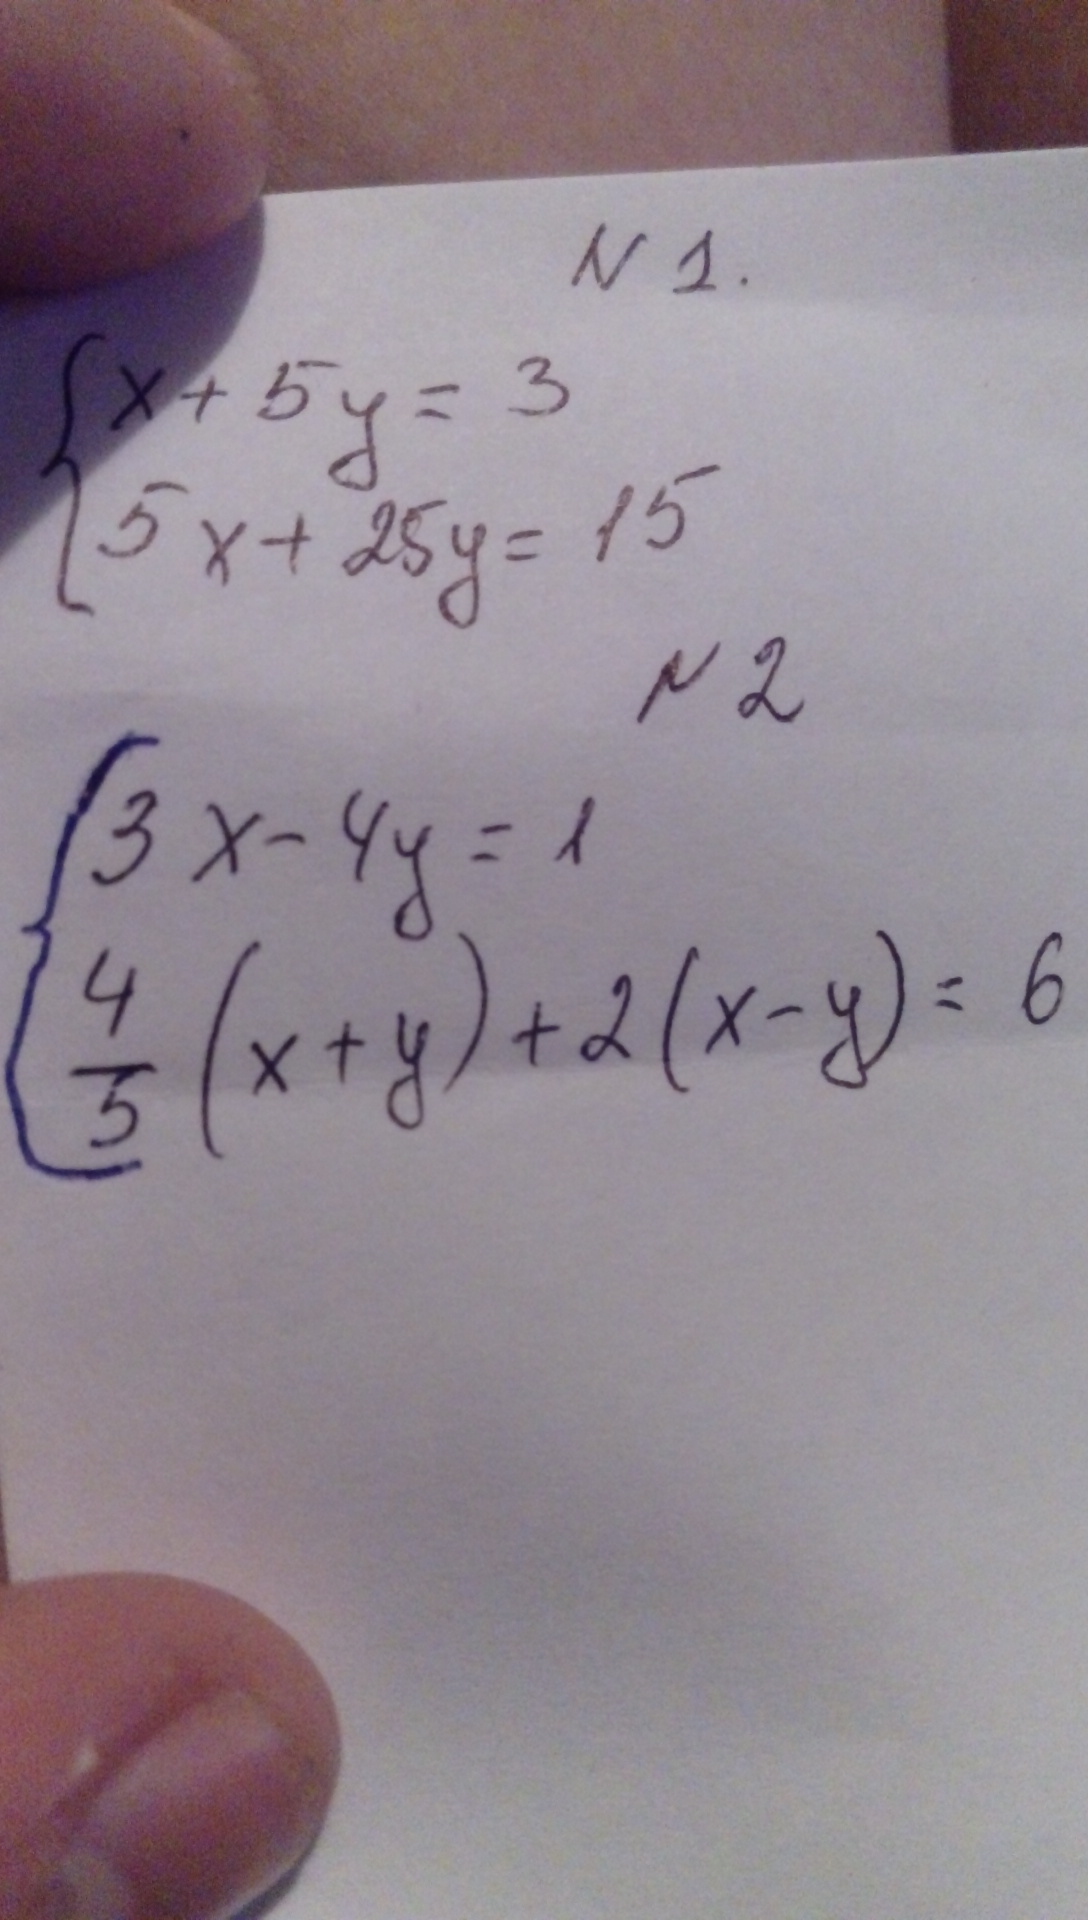 N 1.
{ x + 5y = 3
5x + 25y = 15
N 2
{ 3x - 4y = 1
4/5 (x + y) + 2(x - y) = 6